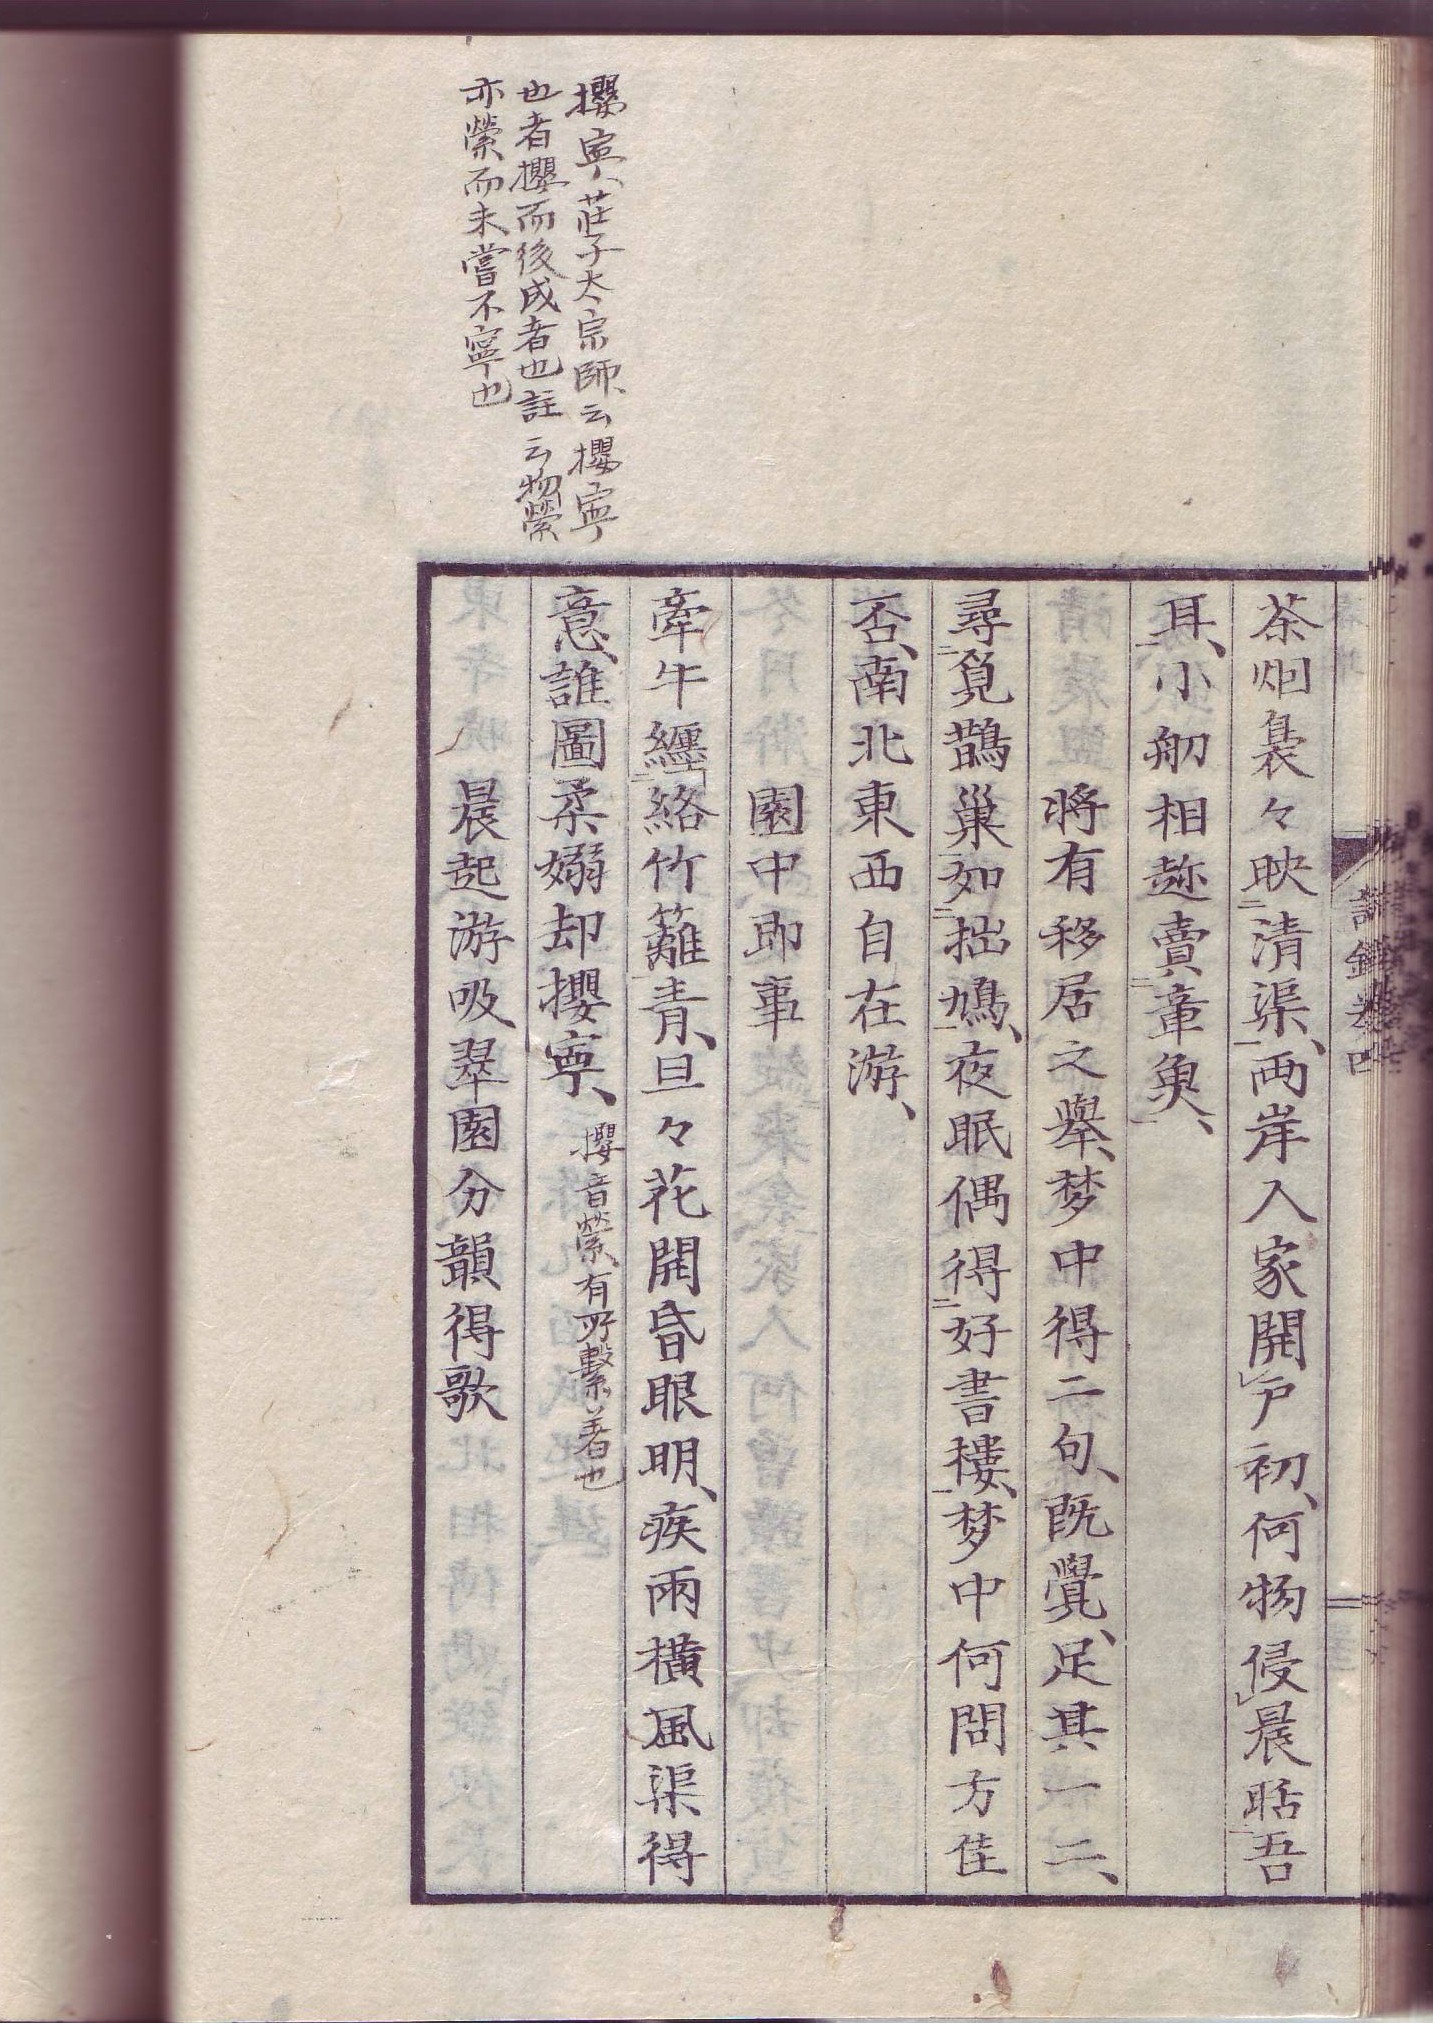 攖寧、莊子大宗師、云攖寧
也者攖而後成者也註云物縈
亦縈而未嘗不寧也
茶烟裊々映清渠、兩岸人家開戸初、何物侵晨聒吾
耳、小舠相趂賣章魚、
將有移居之擧、梦中得二句、既覺、足其一二、
尋覓鵲巢如拙鳩、夜眠偶得好書樓、梦中何問方佳
否、南北東西自在游、
園中即事
牽牛纏絡竹籬青、旦々花開昏眼明、疾雨橫風渠得
意、誰圖柔嫋却攖寧、攖音縈、有所繫着也
晨起游吸翠園分韻得歌